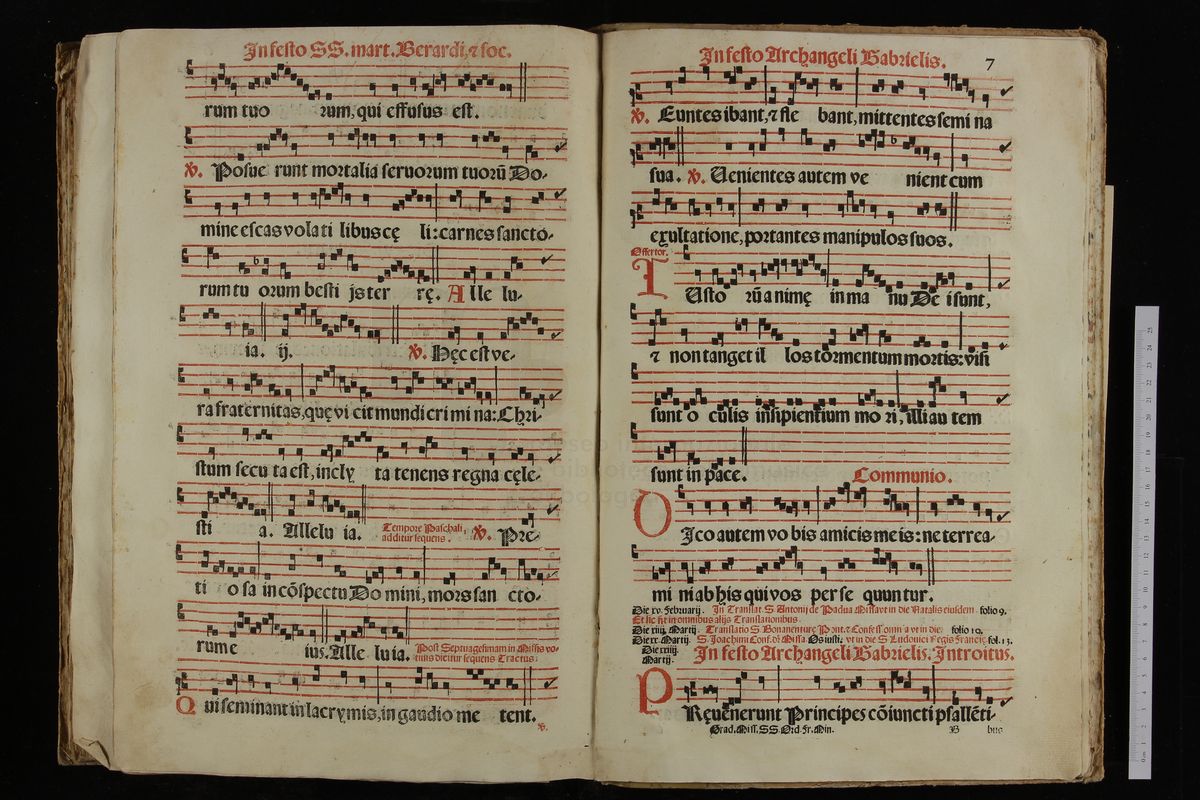 In festo SS. mart. Berardi, ⁊ soc.
rum tuo rum, qui effusus est.
℣. Posue runt mortalia seruorum tuorū Do-
mine escas vola ti libus cę li: carnes sancto-
rum tu orum besti js ter rę. Alle lu-
ia. ij. ℣. Hęc est ve-
ra fraternitas, quę vi cit mundi cri mi na: Chri-
stum secu ta est, incly ta tenens regna cęle-
sti a. Allelu ia. Tempore Paschali, additur sequens. ℣. Pre-
ti o sa in cōspectu Do mini, mors san cto-
rum e ius. Alle luia. Post Septuagesimam in Missis vo-
tiuis dicitur sequens Tractus.
Qui seminant in lacrymis, in gaudio me tent.
℣.
In festo Archangeli Gabrielis. 7
℣. Euntes ibant, ⁊ fle bant, mittentes semi na
sua. ℣. Uenientes autem ve nient cum
exultatione, portantes manipulos suos.
Offertor.
IUsto rū animę in ma nu De i sunt,
⁊ non tanget il los tormentum mortis: visi
sunt o culis insipientium mo ri, illi au tem
sunt in pace. Communio.
DIco autem vo bis amicis me is: ne terrea-
mi ni ab his qui vos per se quun tur.
Die xv. Februarij. In Translat. S. Antonij de Padua Missa vt in die Natalis eiusdem folio 9.
Et sic fit in omnibus alijs Translationibus.
Die xiiij. Martij. Translatio S. Bonauenturę Pont. ⁊ Confess. omnia vt in die. folio 19.
Die xx. Martij. S. Joachimi Conf. Missa Os iusti, vt in die S. Ludouici Regis Francię fol. 13.
Die xxiiij. Martij. In festo Archangeli Gabrielis. Introitus.
PRęuenerunt Principes cōiuncti psallēti-
Grad. Miss. SS. Ord. Fr. Min. B bus